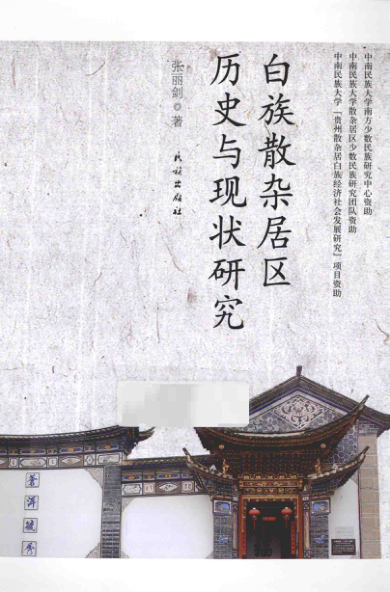 中南民族大学南方少数民族研究中心资助
中南民族大学散杂居区少数民族研究团队资助
中南民族大学「贵州散杂居白族经济社会发展研究」项目资助
白族散杂居区
历史与现状研究
张丽剑◎著
民族出版社
苍洱毓秀